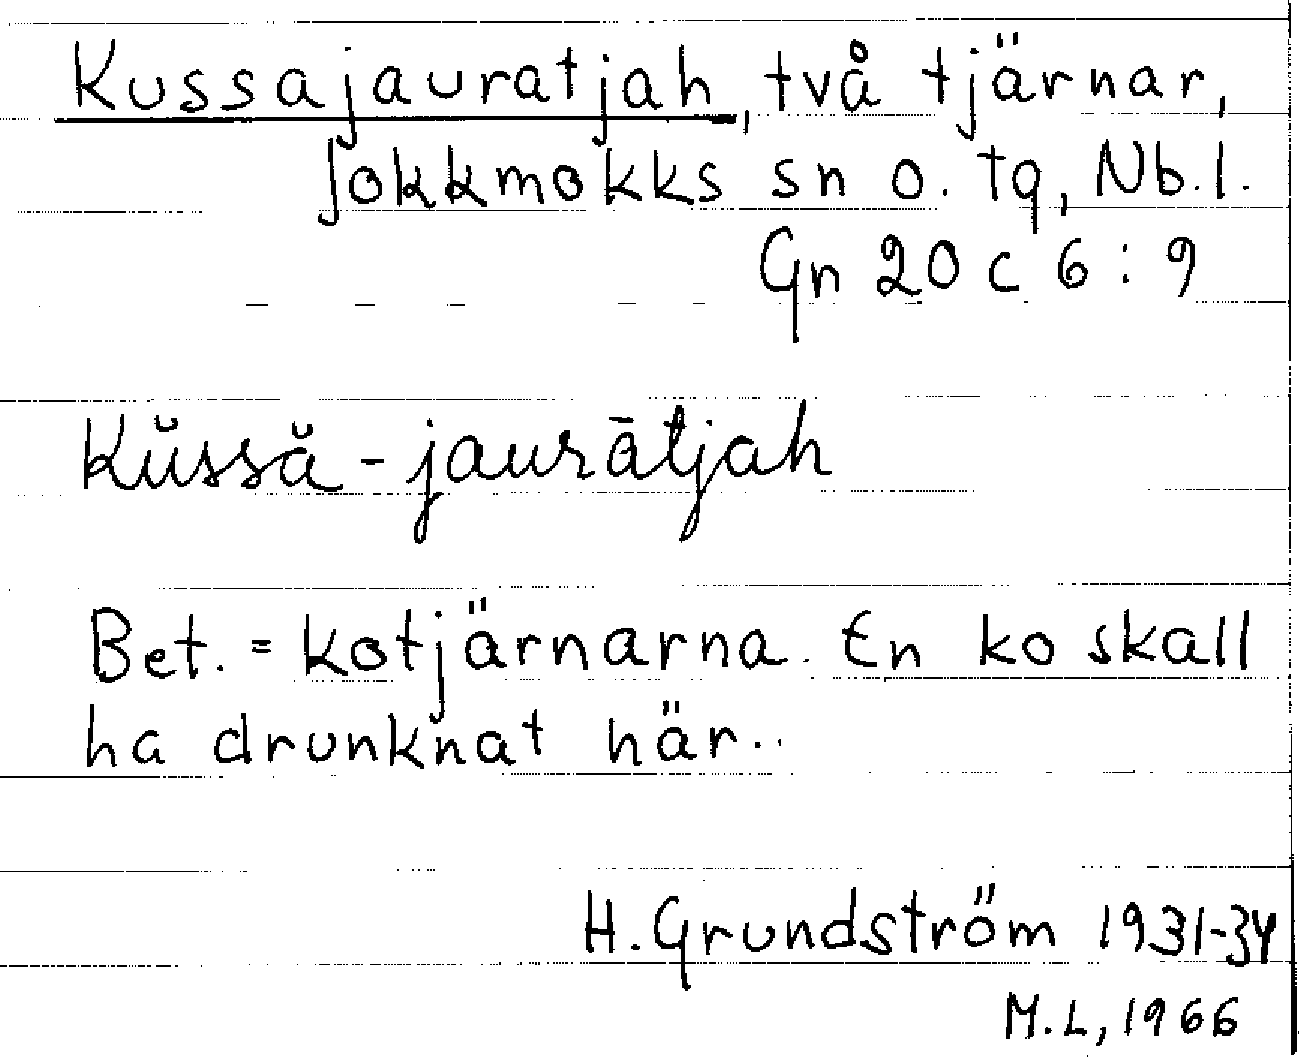 Kussajauratjah, två tjärnar,
Jokkmokks sn o. tg, Nb.l.
Gn 20 c 6 : 9
Kŭssă-jaurātjah
Bet. = kotjärnarna. En ko skall
ha drunknat här..
H. Grundström 1931-34
M.L, 1966